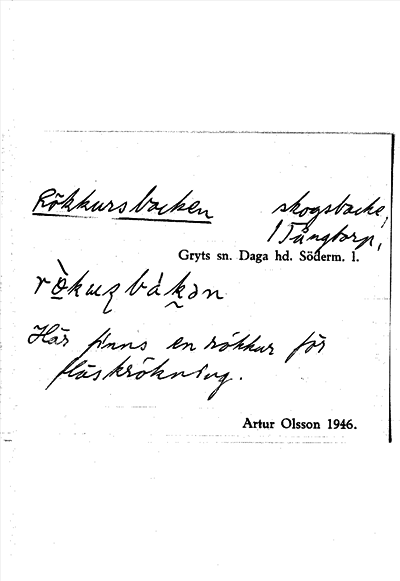 Rökkursbacken skogsbacke,
i Tångtorp,
Gryts sn. Daga hd. Söderm. l.
Här finns en rökkur för
fläskrökning.
Artur Olsson 1946.